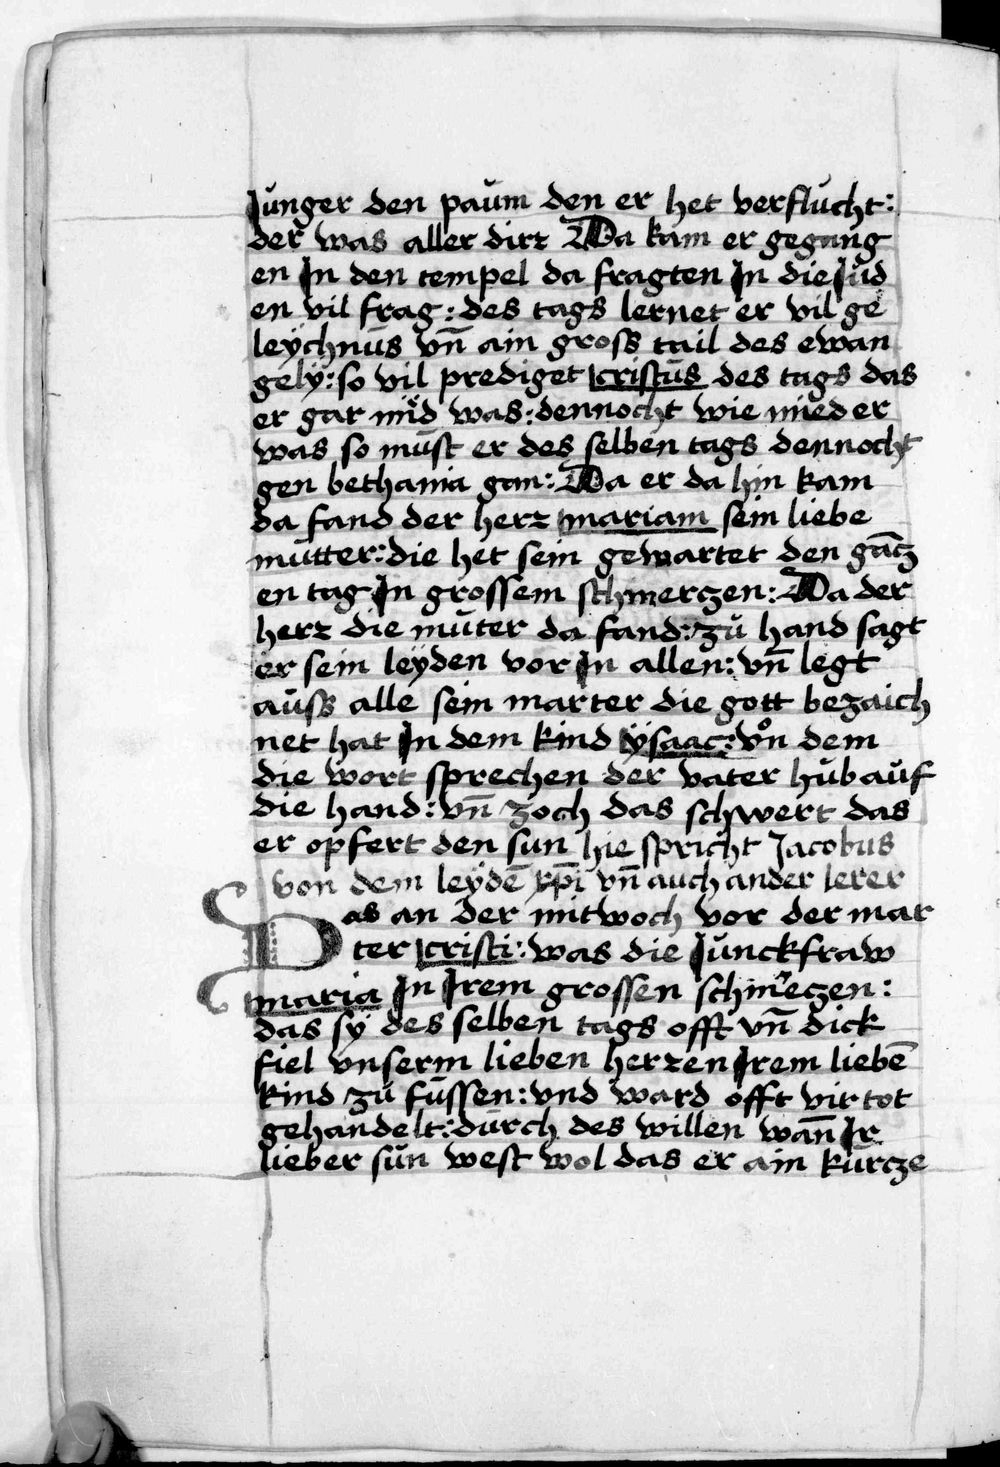 Junger den paŭm den er het verflŭcht:
der was aller dirz Da kam er gegang
en In den tempel da fragten In die Jŭd
en vil frag: des tags lernet er vil ge
leÿchnŭs vn̄ ain gross tail des ewan
gelÿ: so vil prediget cristŭs des tags das
er gar mu̇̈d was: dennocht wie mŭed er
was so mŭst er des selben tags dennocht
gen bethania gan: Da er da hin kam
da fand der herz mariam sein liebe
mŭtter: die het sein gewartet den gācz
en tag In grossem schmerczen: Da der
herz die mŭter da fand: zŭ hand sagt
er sein leÿden vor In allen: vn̄ legt
aŭss alle sein marter die gott bezaich
net hat In dem kind ÿsaac: vo̊n dem
die wort sprechen der vater hŭb aŭf
die hand: vn̄ zoch das schwert das
er opfert den sun hie spricht Jacobus
von dem leydē xp̄i vn̄ auch ander lerer
Das an der mitwoch vor der mar
ter cristi: was die Junckfraw
maria In Irem grossen schm̉eczen:
das sÿ des selben tags offt vn̄ dick
fiel vnserm lieben herzen Irem liebē
kind zŭ fŭssen: vnd ward offt vir tot
gehandelt: dŭrch des willen wan̄ Ir
lieber sŭn west wol das er ain kŭrcze